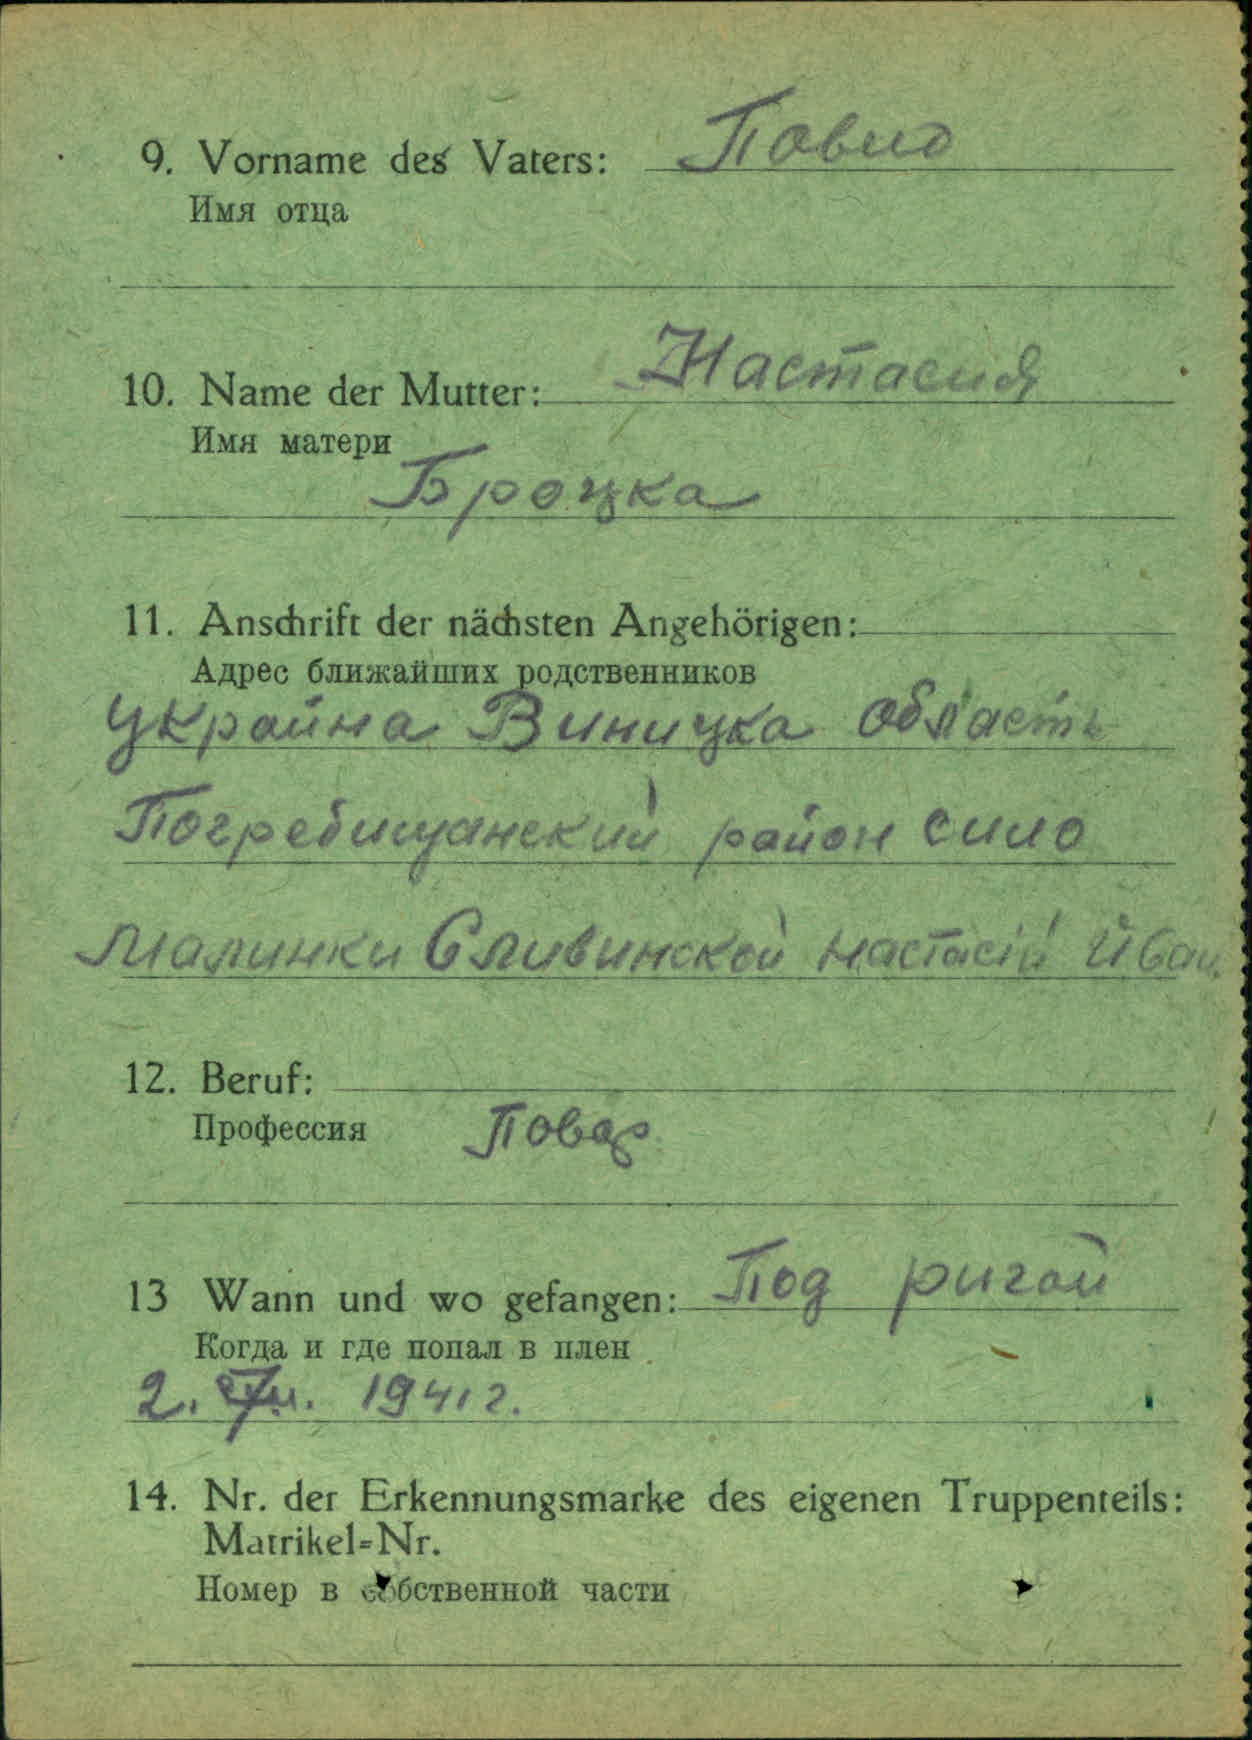 9. Vorname des Vaters: Повло
Имя отца
10. Name der Mutter: Настасия
Имя матери
Броцка
11. Anschrift der nächsten Angehörigen:
Адрес ближайших родственников
Украйна Виницка область
Погребищанский район сило
Малинки Сливинской Настасіі Йван.
12. Beruf:
Профессия
Повар
13 Wann und wo gefangen: Под ригой
Когда и где попал в плен
2. 1941г.
14. Nr. der Erkennungsmarke des eigenen Truppenteils:
Matrikel=Nr.
Номер в собственной части